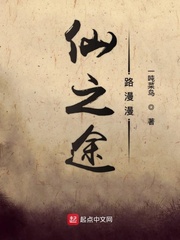 仙之途
路漫漫
一吨菜鸟 著
起点中文网